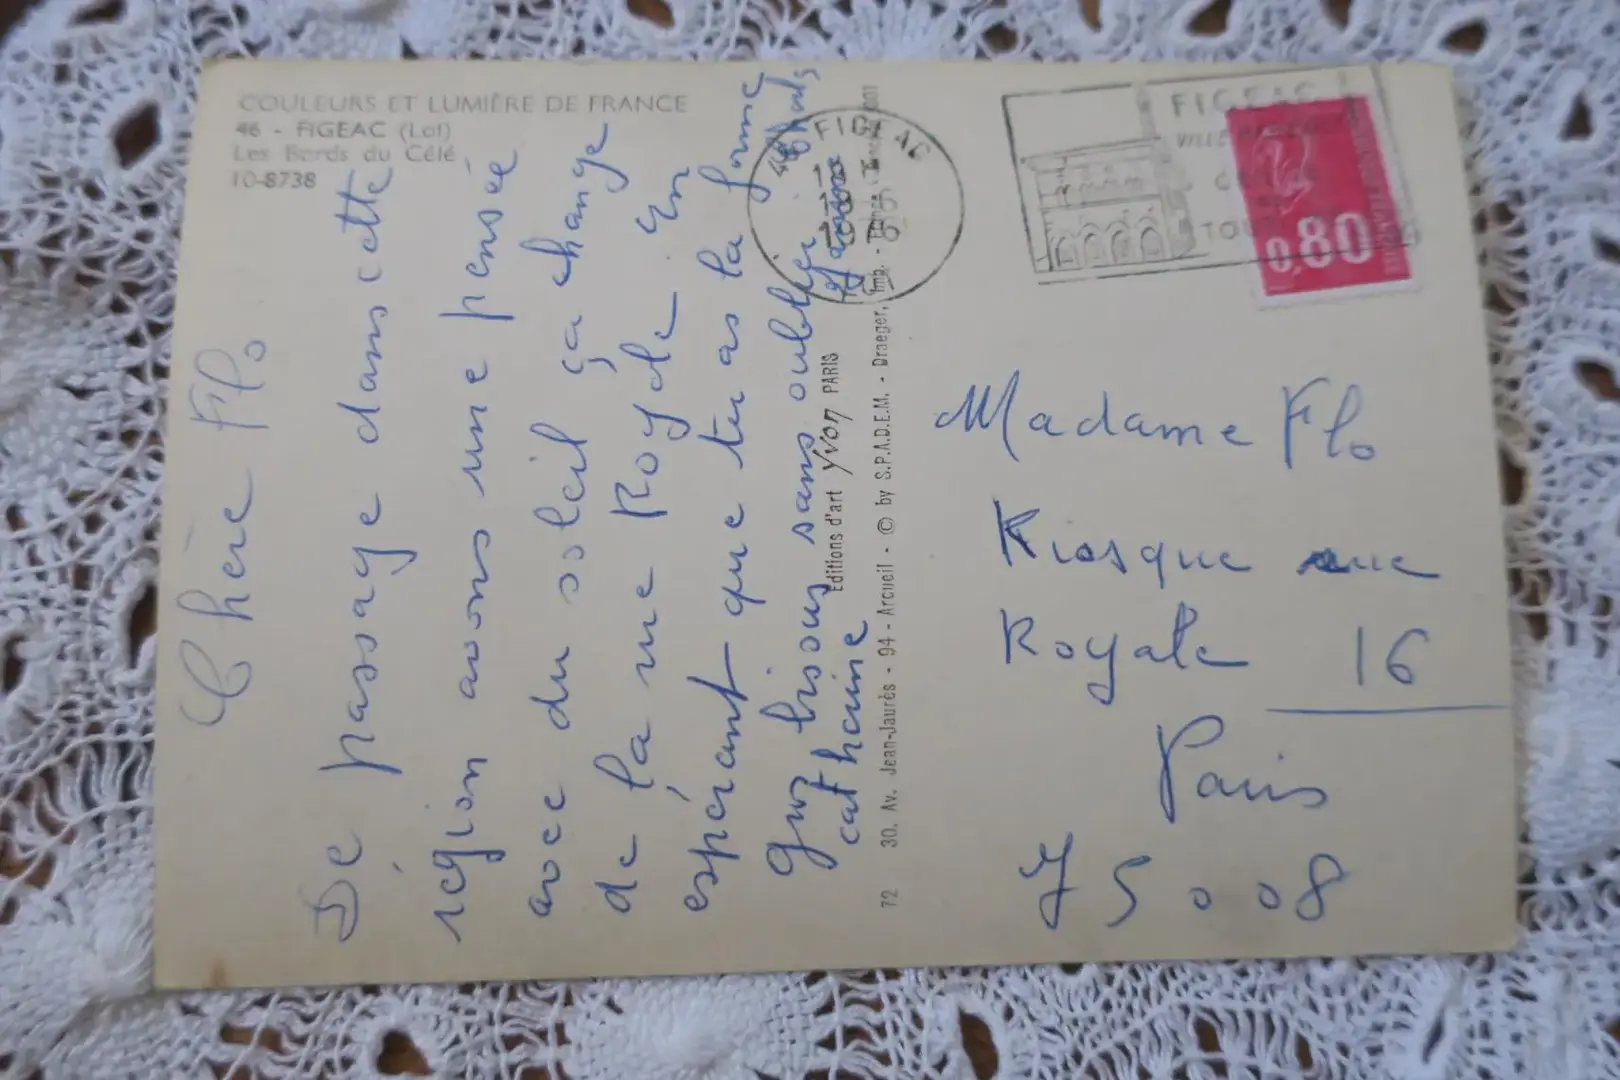 COULEURS ET LUMIÈRE DE FRANCE
46 - FIGEAC (Lot)
Les Bords du Célé
10-8738
Chère Flo
De passage dans cette
région avons une pensée
avec du soleil ça change
de la rue Royale. En
espérant que tu as la forme
Gros bisous sans oublier
catherine
Editions d'art Yvon PARIS
72 30, Av. Jean-Jaurès - 94 - Arcueil - © by S.P.A.D.E.M. - Draeger, Imp.
FIGEAC
FIGEAC
VILLE
0,80
Madame Flo
Kiosque rue
Royale 16
Paris
75008